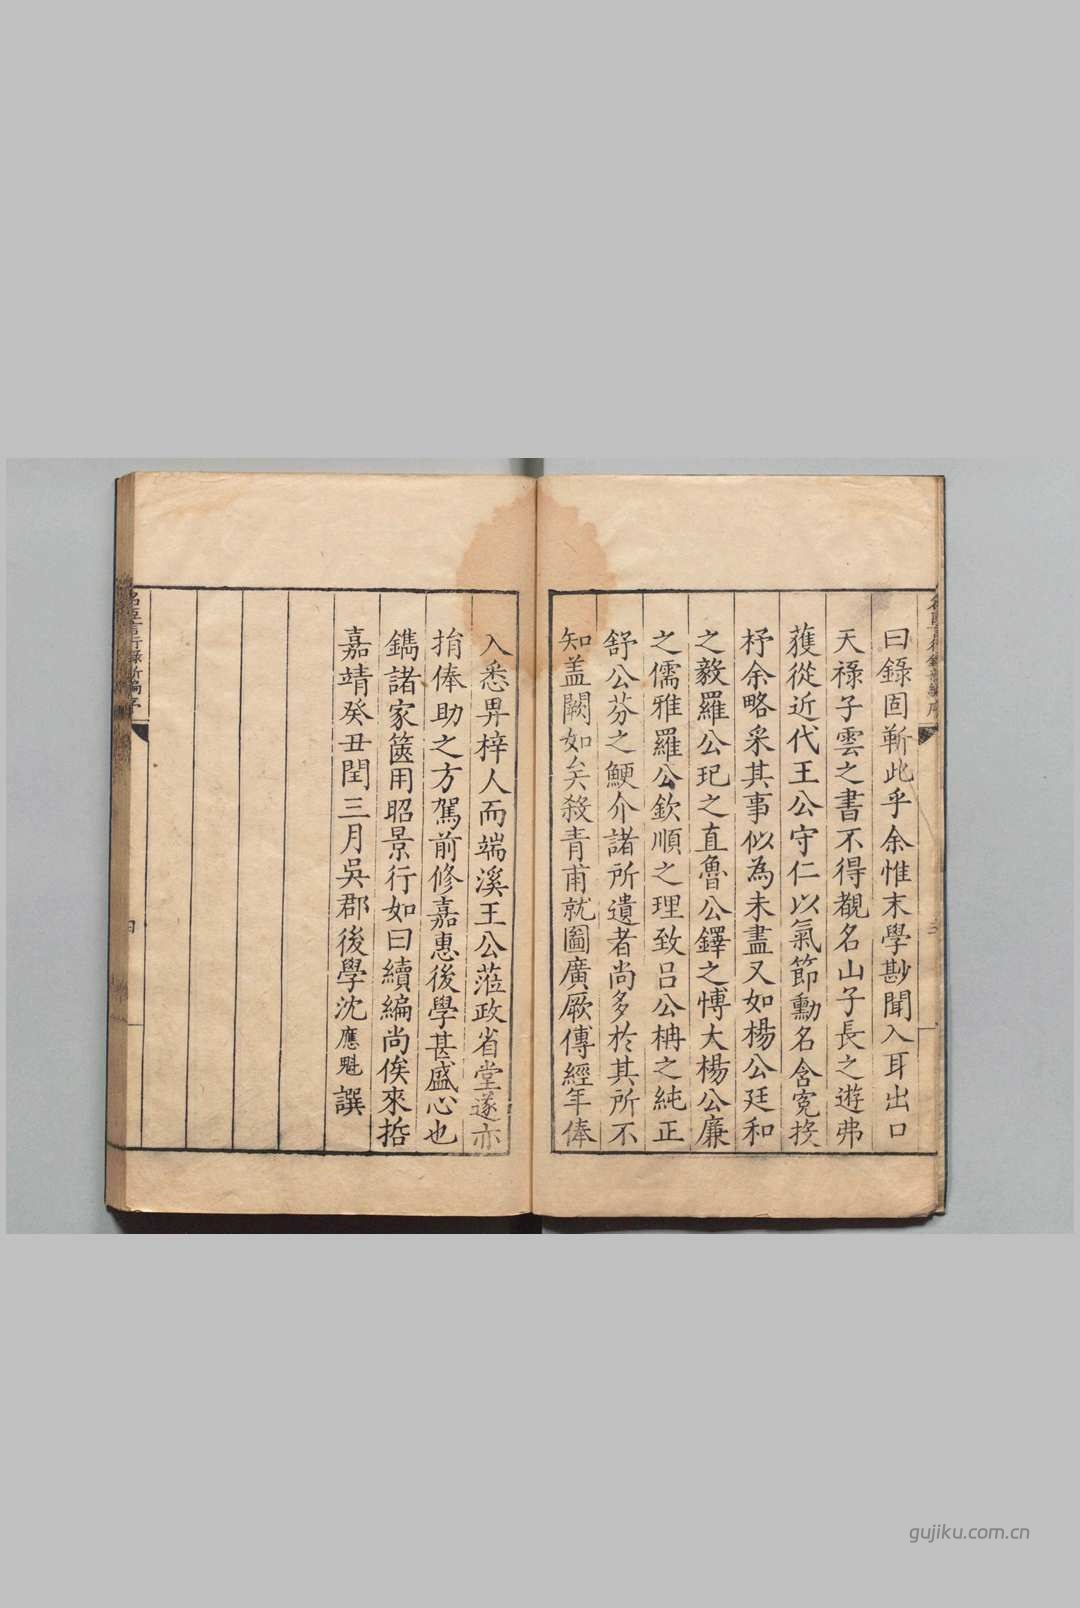 曰錄固靳此乎余惟末學尠聞入耳出口
天祿子雲之書不得覩名山子長之遊弗
獲從近代王公守仁以氣節勳名含寃投
杼余略采其事似為未盡又如楊公廷和
之毅羅公玘之直魯公鐸之愽大楊公廉
之儒雅羅公欽順之理致呂公柟之純正
舒公芬之鯁介諸所遺者尚多於其所不
知盖闕如矣殺青甫就圖廣厥傳經年俸
入悉畀梓人而端溪王公蒞政省堂遂亦
捐俸助之方駕前修嘉惠後學甚盛心也
鐫諸家篋用昭景行如曰續編尚俟來哲
嘉靖癸丑閏三月吳郡後學沈應魁譔
名臣言行錄新編序
四
gujiku.com.cn